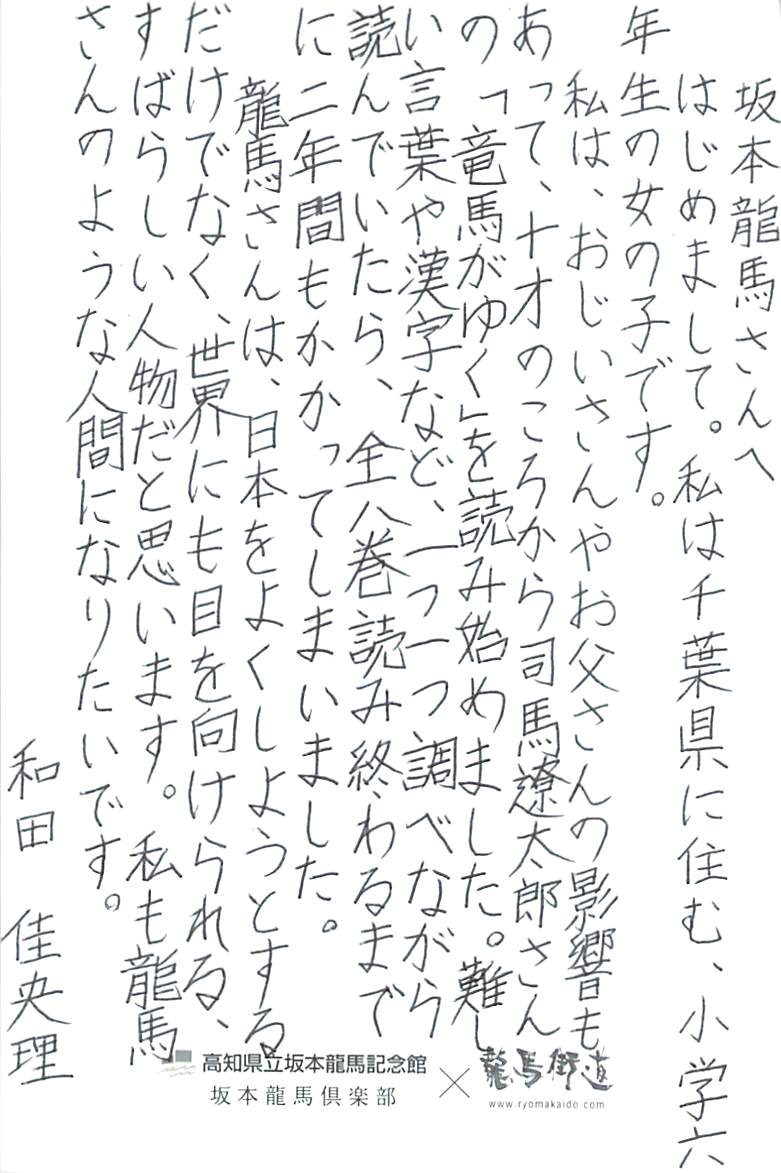 坂本龍馬さんへ
はじめまして。私は千葉県に住む、小学六
年生の女の子です。
私は、おじいさんやお父さんの影響も
あって、十才のころから司馬遼太郎さん
の「竜馬がゆく」を読み始めました。難し
い言葉や漢字など、一つ一つ調べながら
読んでいたら、全八巻読み終わるまで
に二年間もかかってしまいました。
龍馬さんは、日本をよくしようとする
だけでなく、世界にも目を向けられる、
すばらしい人物だと思います。私も龍馬
さんのような人間になりたいです。
和田 佳央理
高知県立坂本龍馬記念館
坂本龍馬倶楽部
×
龍馬街道
www.ryomakaido.com